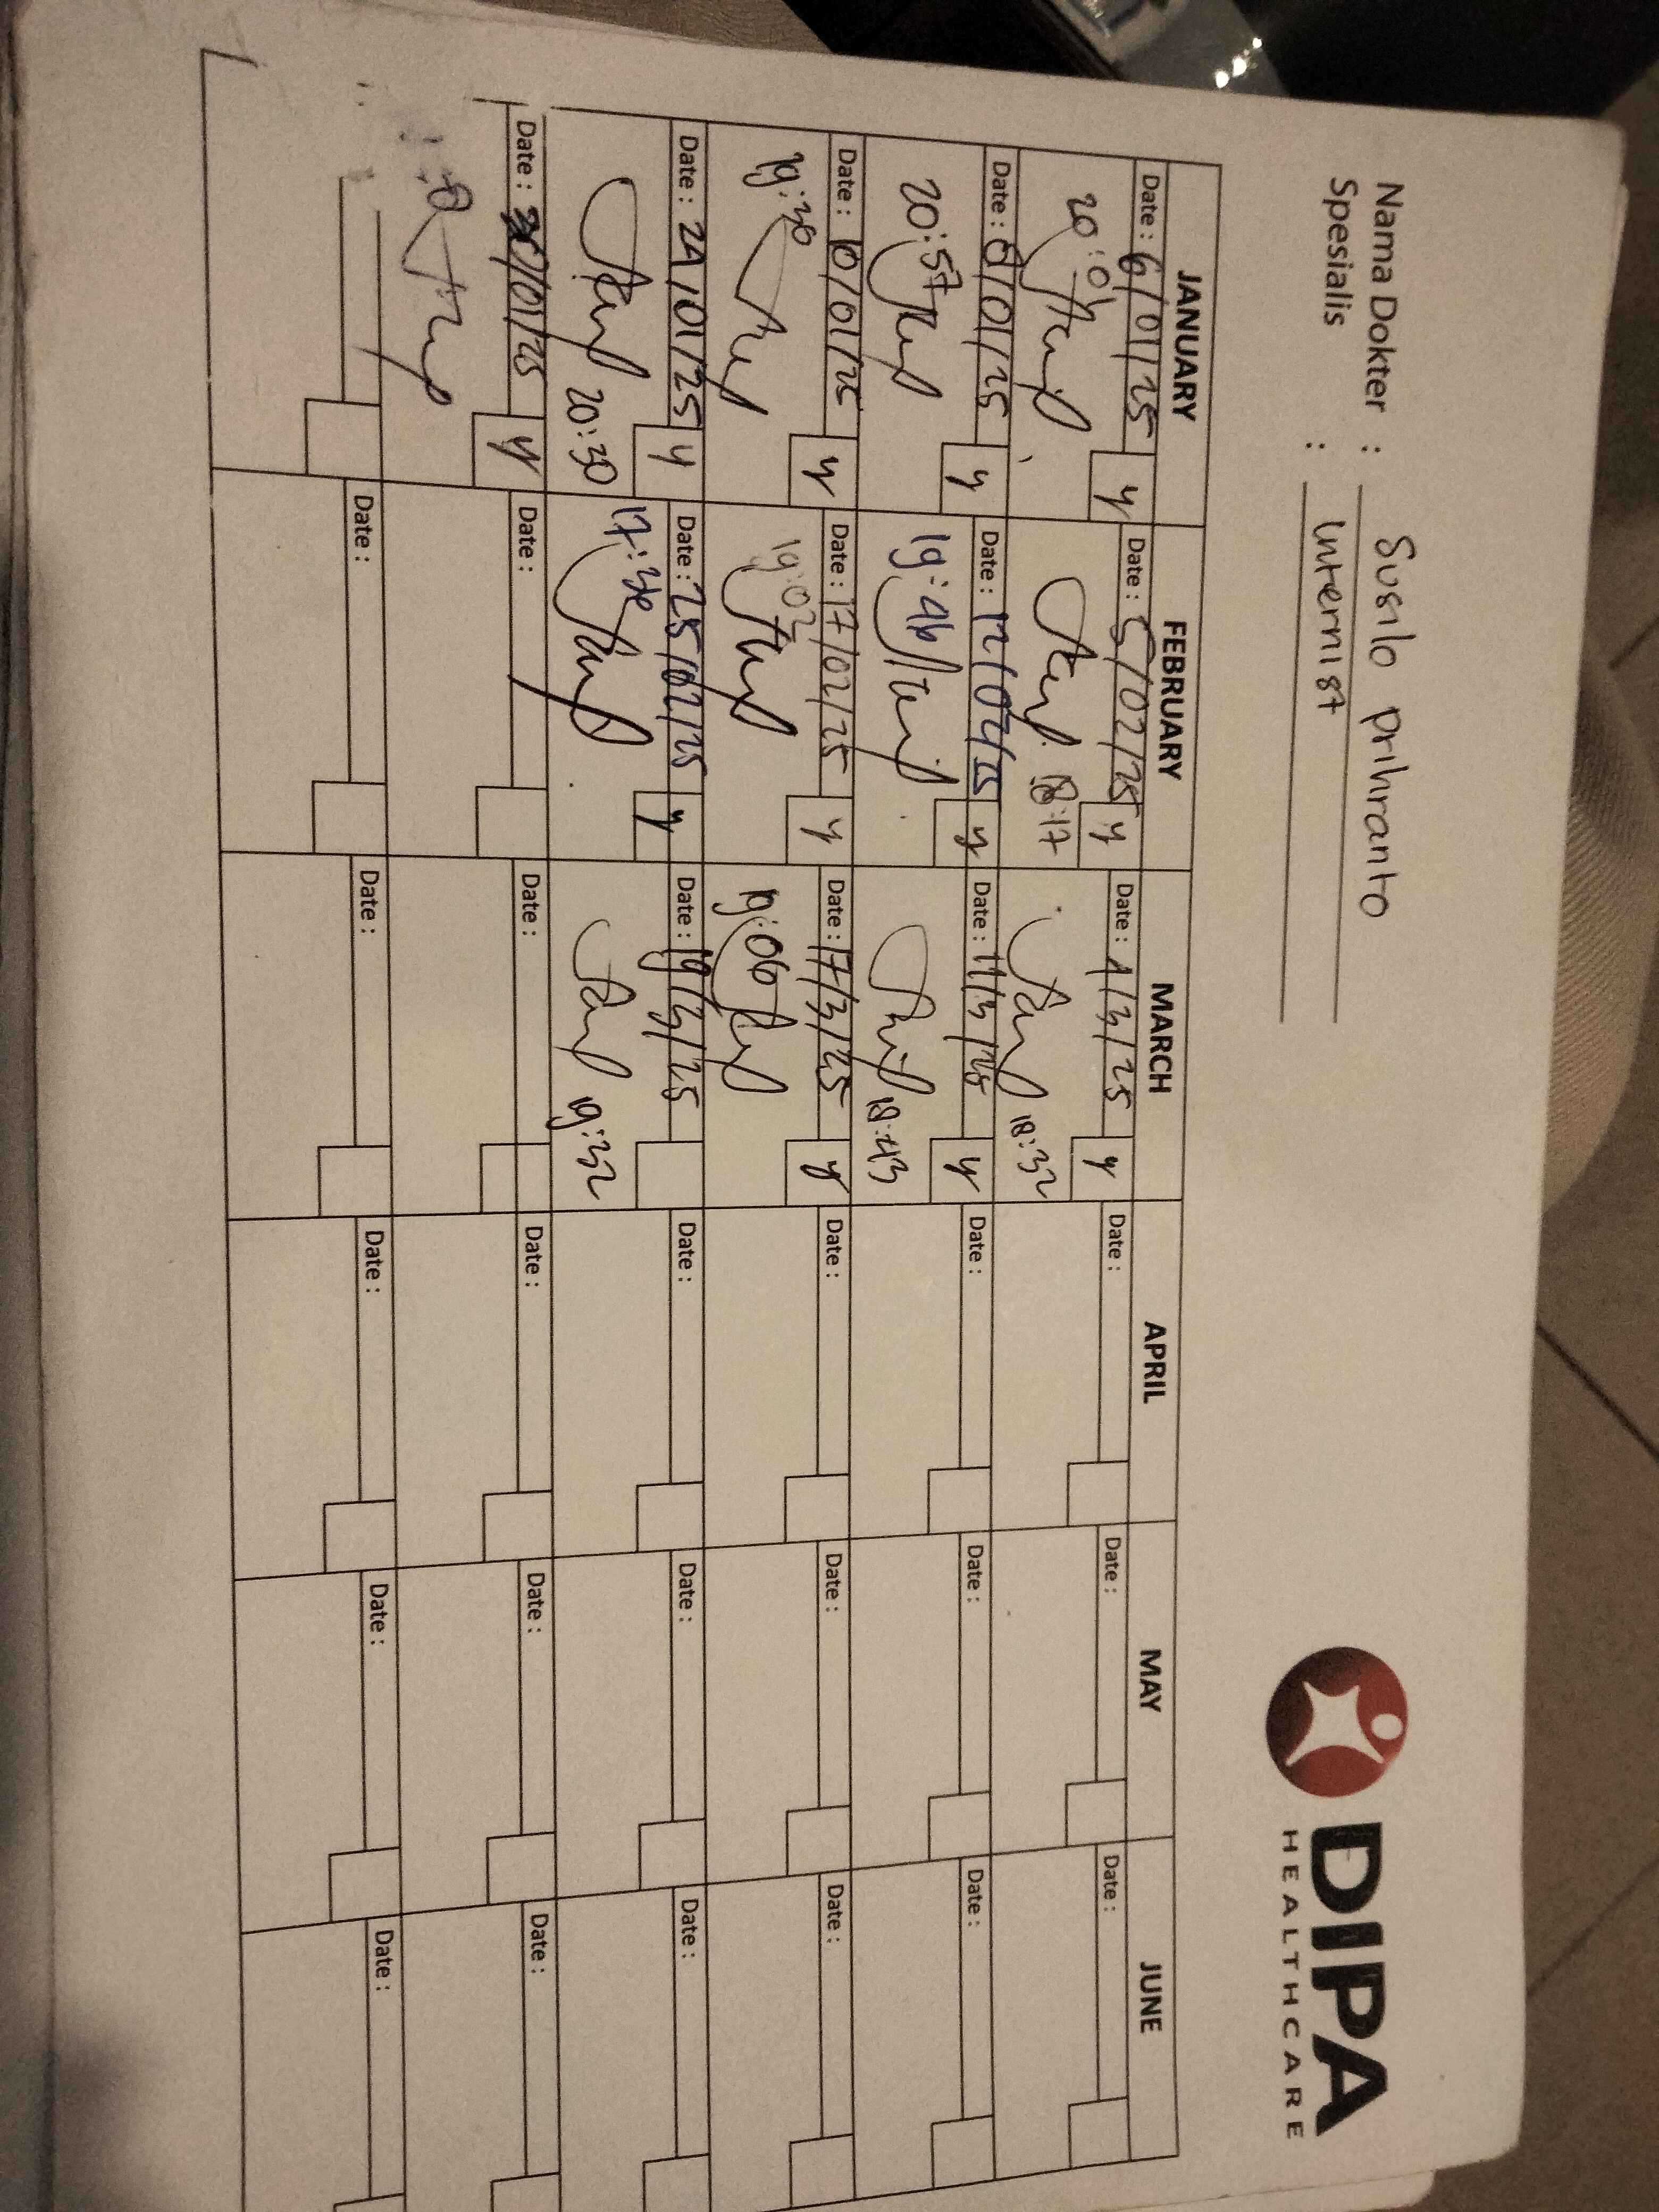 Nama Dokter : Susilo prihranto
Spesialis : Internist
DIPA
HEALTHCARE
JANUARY FEBRUARY MARCH APRIL MAY JUNE
Date : 6/01/25 y Date : 5/02/25 y Date : 4/3/25 y Date : Date : Date :
18:17 18:32
Date : 8/01/25 y Date : 12/02/25 y Date : 11/3/25 y Date : Date : Date :
20:57 19:46 18:43
Date : y Date : 17/02/25 y Date : 17/3/25 y Date : Date : Date :
19:30 19:02 19:06
Date : 24/01/25 y Date : 25/02/25 y Date : 19/3/25 Date : Date : Date :
20:30 19:32
Date : /01/25 y Date : Date : Date : Date : Date :
Date : Date : Date : Date : Date :